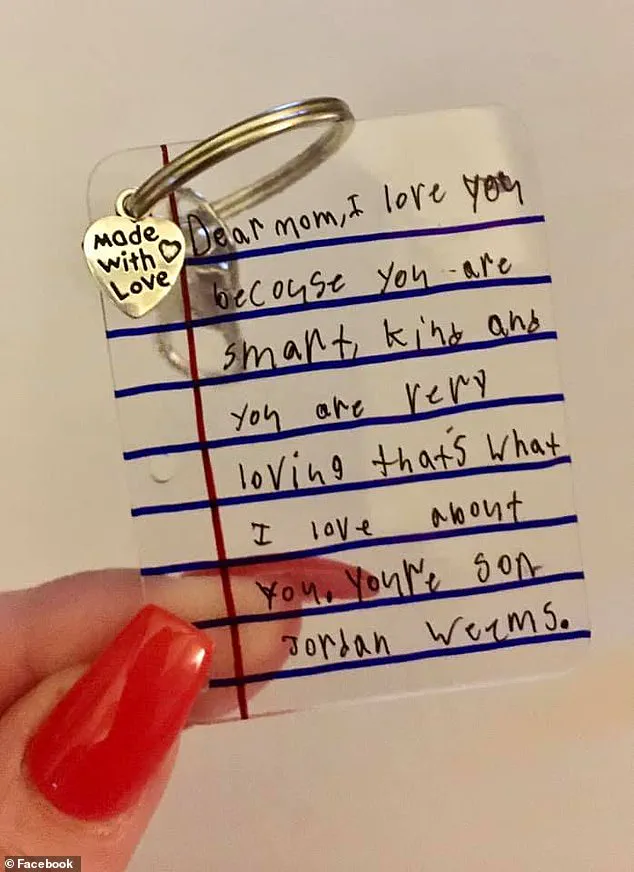 Made
with
Love
Dear mom, I love you
becouse you are
smart, kind and
you are very
loving that's what
I love about
you. You're son
Jordan Weems.
© Facebook